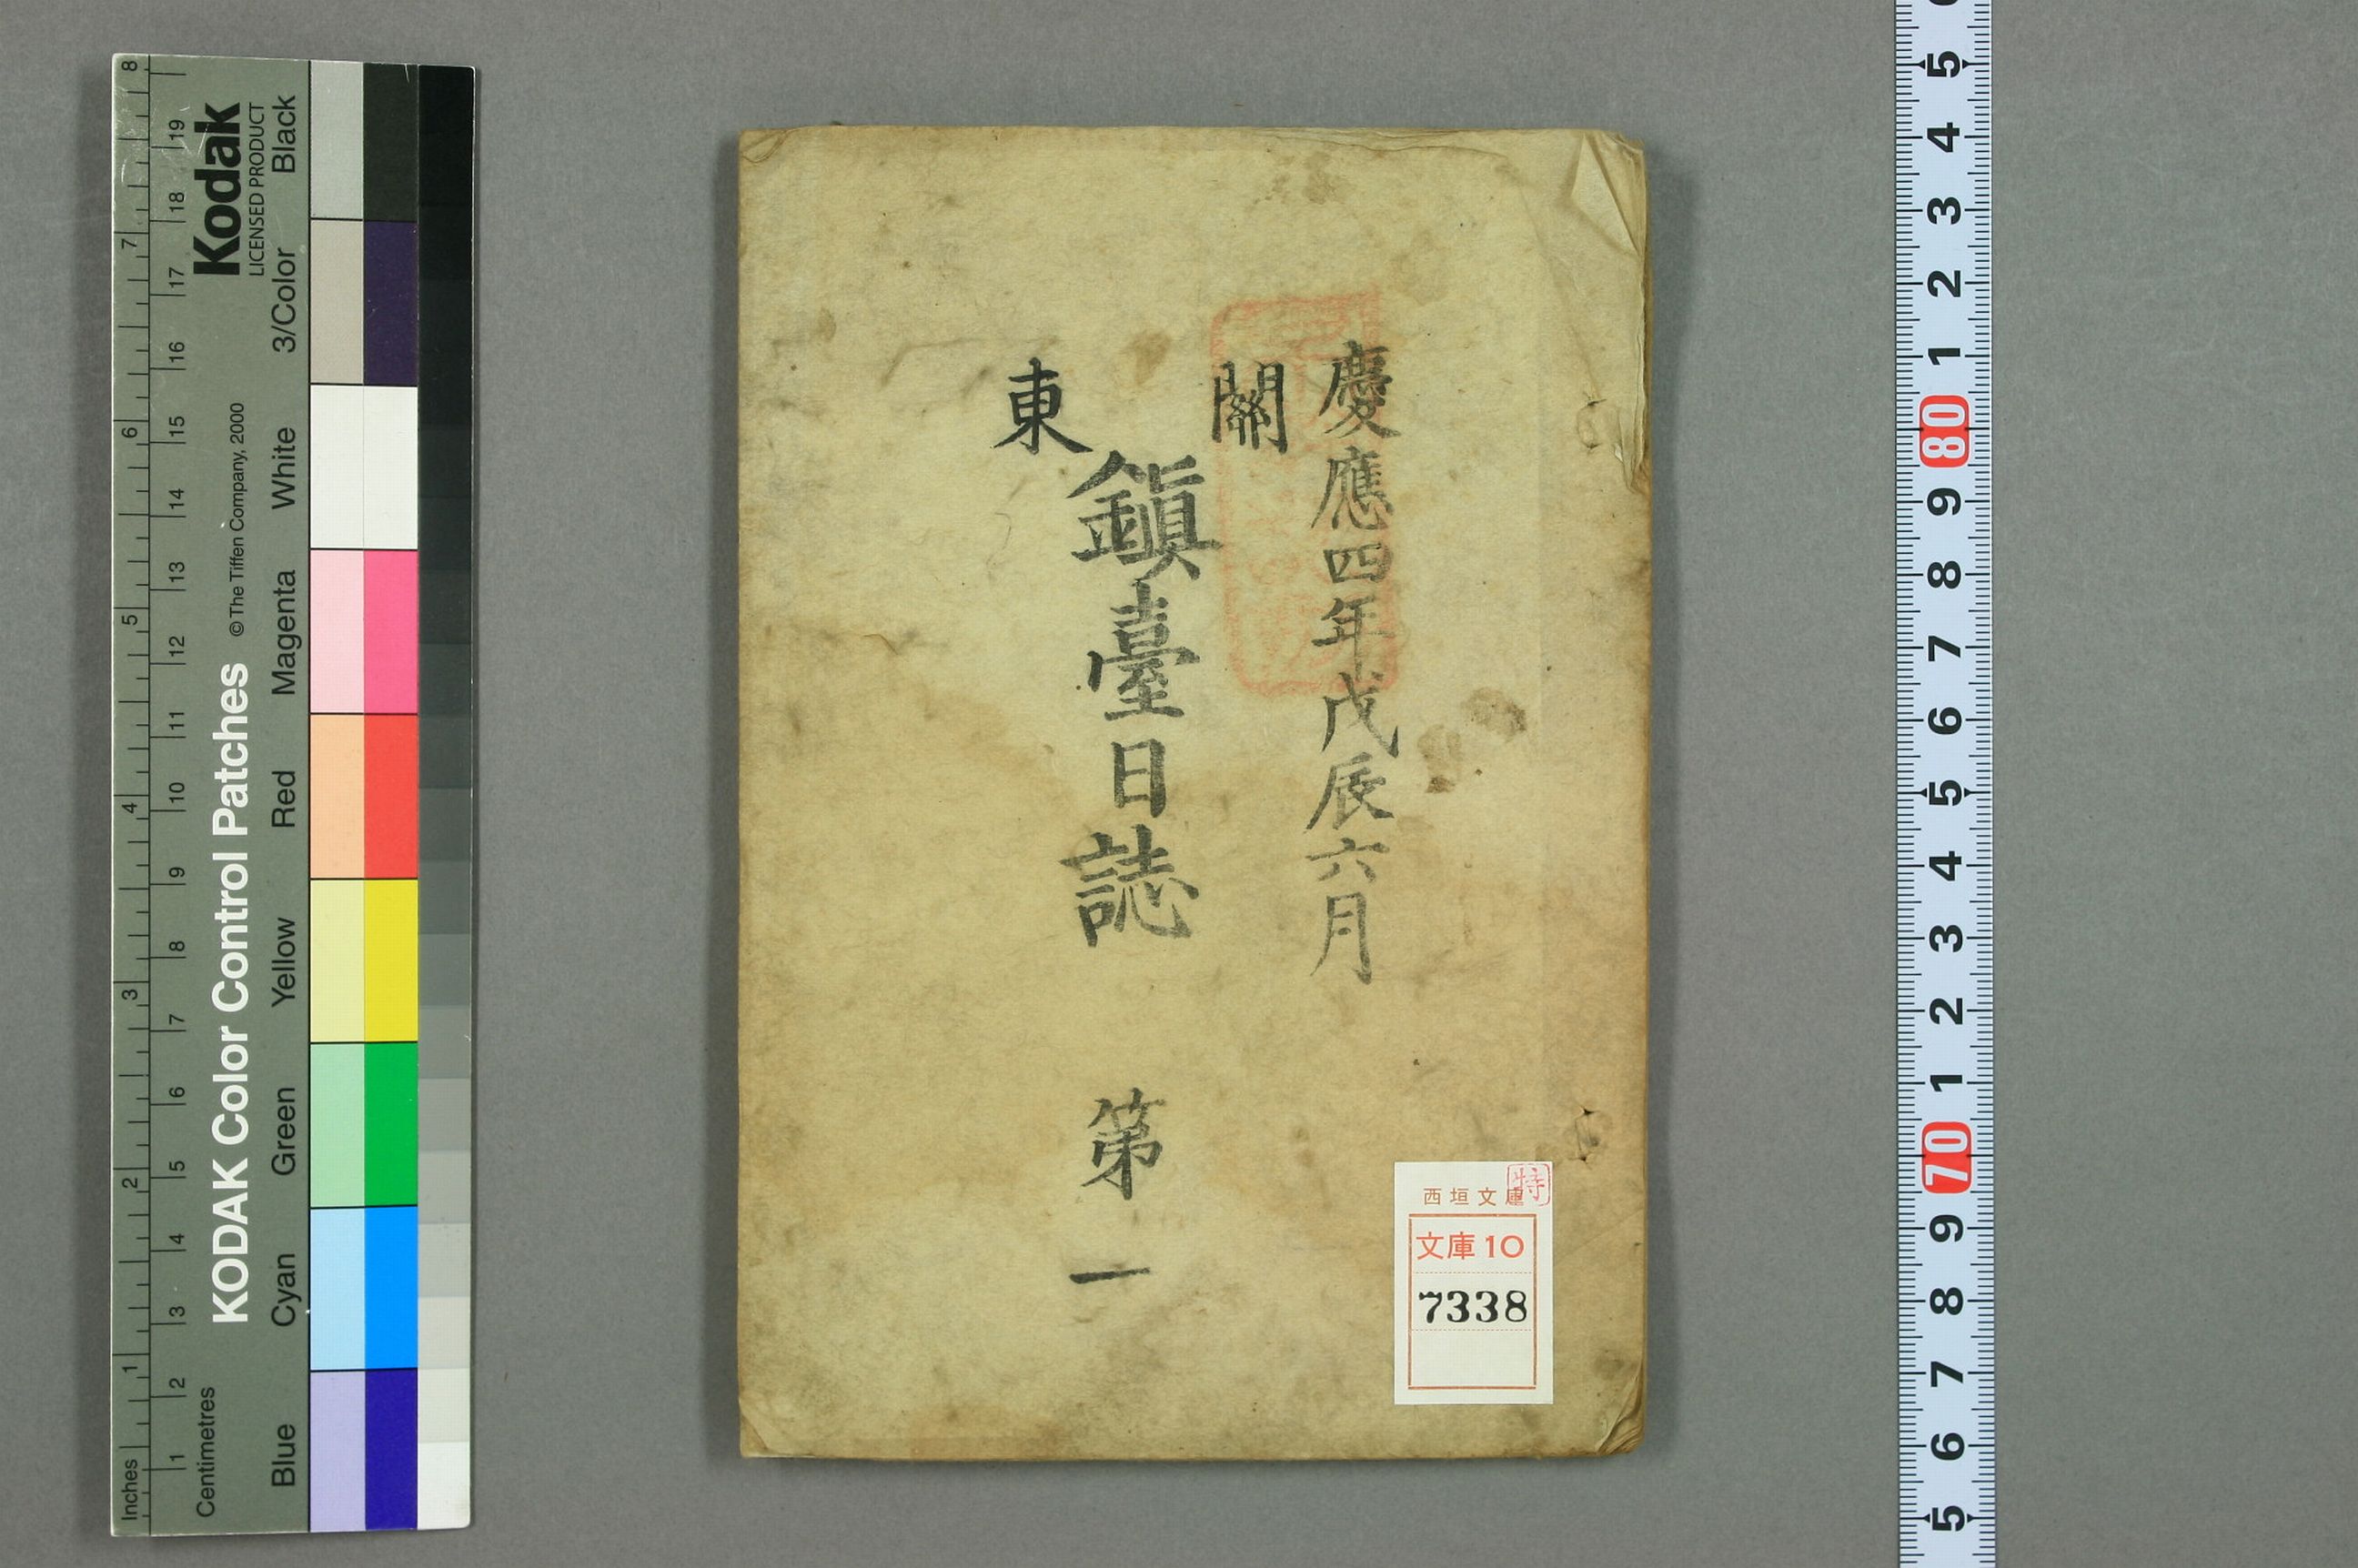 慶應四年戊辰六月
關東
鎭臺日誌 第一
西垣文庫
特
文庫10
7338
Kodak
LICENSED PRODUCT
KODAK Color Control Patches
©The Tiffen Company, 2000
Blue Cyan Green Yellow Red Magenta White 3/Color Black
Centimetres
1 2 3 4 5 6 7 8 9 10 11 12 13 14 15 16 17 18 19
Inches
1 2 3 4 5 6 7 8
5 4 3 2 1 80 9 8 7 6 5 4 3 2 1 70 9 8 7 6 5